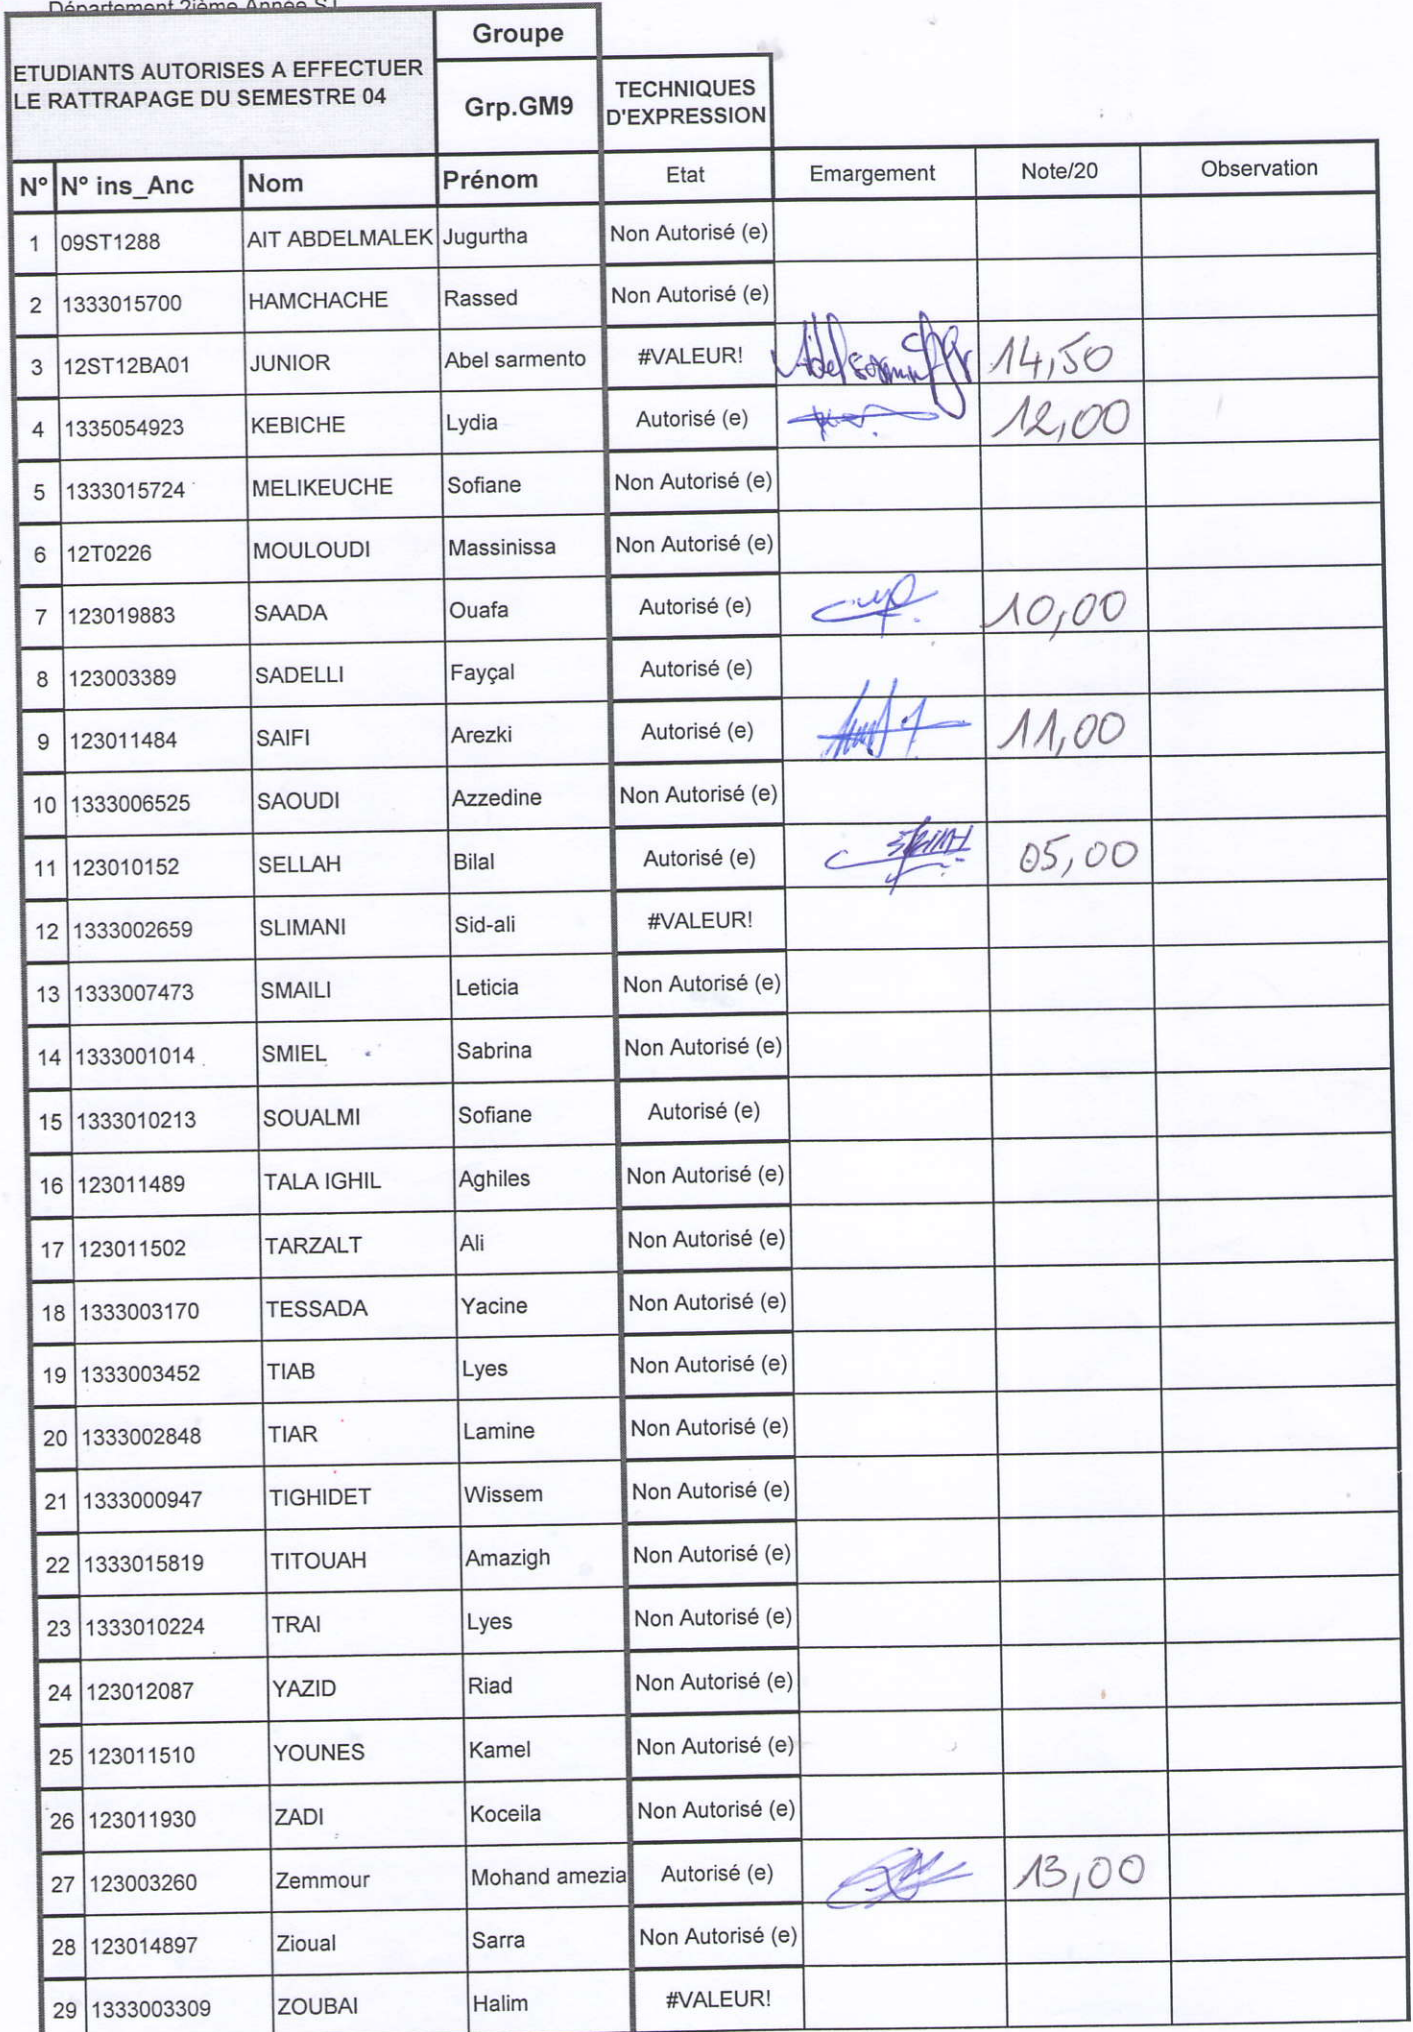 Département 2ième Année ST
Groupe
ETUDIANTS AUTORISES A EFFECTUER
LE RATTRAPAGE DU SEMESTRE 04
Grp.GM9
TECHNIQUES
D'EXPRESSION
N° N° ins_Anc Nom Prénom Etat Emargement Note/20 Observation
1 09ST1288 AIT ABDELMALEK Jugurtha Non Autorisé (e)
2 1333015700 HAMCHACHE Rassed Non Autorisé (e)
3 12ST12BA01 JUNIOR Abel sarmento #VALEUR! 14,50
4 1335054923 KEBICHE Lydia Autorisé (e) 12,00
5 1333015724 MELIKEUCHE Sofiane Non Autorisé (e)
6 12T0226 MOULOUDI Massinissa Non Autorisé (e)
7 123019883 SAADA Ouafa Autorisé (e) 10,00
8 123003389 SADELLI Fayçal Autorisé (e)
9 123011484 SAIFI Arezki Autorisé (e) 11,00
10 1333006525 SAOUDI Azzedine Non Autorisé (e)
11 123010152 SELLAH Bilal Autorisé (e) 05,00
12 1333002659 SLIMANI Sid-ali #VALEUR!
13 1333007473 SMAILI Leticia Non Autorisé (e)
14 1333001014 SMIEL Sabrina Non Autorisé (e)
15 1333010213 SOUALMI Sofiane Autorisé (e)
16 123011489 TALA IGHIL Aghiles Non Autorisé (e)
17 123011502 TARZALT Ali Non Autorisé (e)
18 1333003170 TESSADA Yacine Non Autorisé (e)
19 1333003452 TIAB Lyes Non Autorisé (e)
20 1333002848 TIAR Lamine Non Autorisé (e)
21 1333000947 TIGHIDET Wissem Non Autorisé (e)
22 1333015819 TITOUAH Amazigh Non Autorisé (e)
23 1333010224 TRAI Lyes Non Autorisé (e)
24 123012087 YAZID Riad Non Autorisé (e)
25 123011510 YOUNES Kamel Non Autorisé (e)
26 123011930 ZADI Koceila Non Autorisé (e)
27 123003260 Zemmour Mohand amezia Autorisé (e) 13,00
28 123014897 Zioual Sarra Non Autorisé (e)
29 1333003309 ZOUBAI Halim #VALEUR!